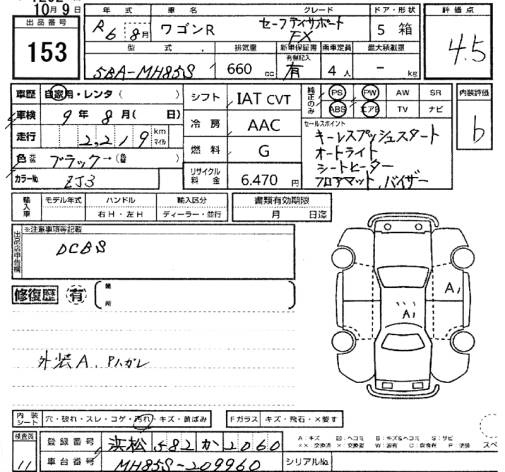 10月9日
出品番号
153
年式 車名 グレード ドア・形状 評価点
R6 8月 ワゴンR セーフティサポート FX 5 箱 4.5
型式 排気量 新車保証書 乗車定員 最大積載量
5BA-MH85S 660 cc 有 4人 - kg
車歴 自家用・レンタ( )
車検 9年 8月( 日)
走行 2,219 km マイル
色 ブラック→( )
カラーNo. ZJ3
シフト IAT CVT
冷房 AAC
燃料 G
リサイクル料金 6,470円
純正のみ PS PW AW SR
ABS エアB TV ナビ
セールスポイント
キーレスプッシュスタート
オートライト
シートヒーター
フロアマット,バイザー
内装評価
b
輸入車 モデル年式 ハンドル 輸入区分 書類有効期限
年 右H・左H ディーラー・並行 月 日迄
出品店申告欄 ※注意事項等記載
DCBS
修復歴 有 箇所
A1
A1
外装A、Pハガレ
内装シート 穴・破れ・スレ・コゲ・汚れ・キズ・黄ばみ Fガラス キズ・飛石・×要す
検査員 11
登録番号 浜松 582 か 2060
車台番号 MH85S-209960 シリアルNo.